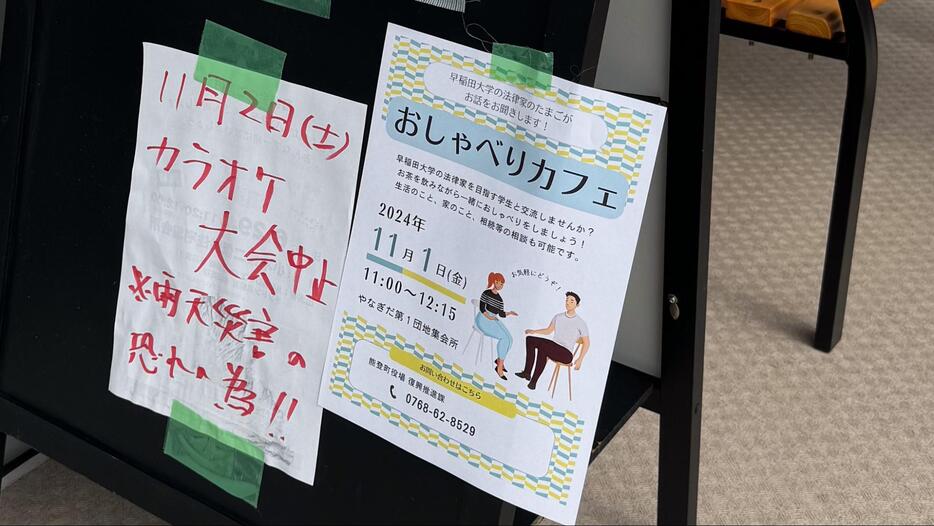 11月2日(土)
カラオケ
大会中止
※雨天災害の
恐れの為!!
早稲田大学の法律家のたまごが
お話をお聞きします！
おしゃべりカフェ
早稲田大学の法律家を目指す学生と交流しませんか？
お茶を飲みながら一緒におしゃべりをしましょう！
生活のこと、家のこと、相続等の相談も可能です。
2024年
11月1日(金)
11:00〜12:15
やなぎだ第1団地集会所
お気軽にどうぞ！
お問い合わせはこちら
能登町役場 復興推進課
0768-62-8529